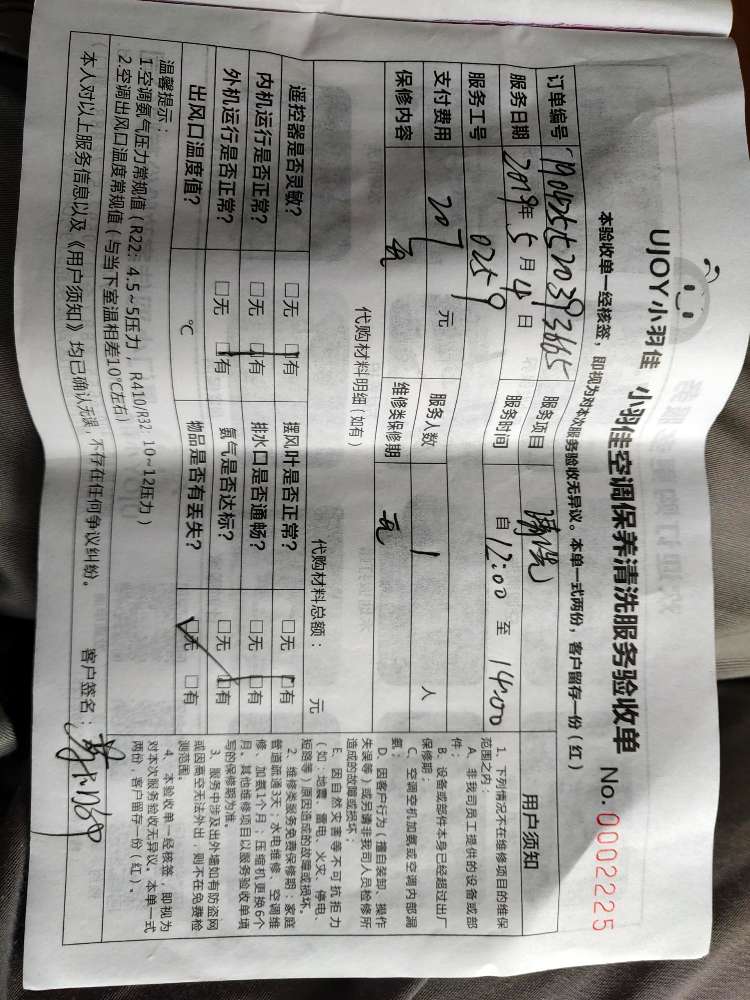 UJOY小羽佳 小羽佳空调保养清洗服务验收单 No. 0002225
本验收单一经核签，即视为对本次服务验收无异议。本单一式两份，客户留存一份（红）
订单编号 服务项目 清洗
服务日期 2019年5月4日 服务时间 自12:00至14:00
服务工号 0259
支付费用 207元 服务人数 1人
保修内容 无 维修类保修期 无
代购材料明细(如有) 代购材料总额： 元
遥控器是否灵敏？ □无 □有 摆风叶是否正常？ □无 □有
内机运行是否正常？ □无 □有 排水口是否通畅？ □无 □有
外机运行是否正常？ □无 □有 氨气是否达标？ □无 □有
出风口温度值？ ℃ 物品是否有丢失？ □无 □有
温馨提示：
1.空调氨气压力常规值（R22：4.5~5压力，R410/R32 10~12压力）
2.空调出风口温度常规值（与当下室温相差10℃左右）
本人对以上服务信息以及《用户须知》均已确认无误，不存在任何争议纠纷。 客户签名：
用户须知
1、下列情况不在维修项目的维保
范围之内：
A、非我司员工提供的设备或部
件；
B、设备或部件本身已经超过出厂
保修期；
C、空调空机加氨或空调内部漏
氨；
D、因客户行为（擅自装卸、操作
失误等）或另请非我司人员检修所
造成的故障或损坏；
E、因自然灾害等不可抗拒力
（如：地震、雷电、火灾、停电、
短路等）原因造成的故障或损坏。
2、维修类服务免费保修期：家庭
管道疏通3天；水电维修、空调维
修、加氨1个月；压缩机更换6个
月。其他维修项目以服务验收单填
写的保修期为准。
3、服务中涉及出外墙如有防盗网
或因高空无法外出，则不在免费检
测范围。
4、本验收单一经核签，即视为
对本次服务验收无异议。本单一式
两份，客户留存一份（红）。